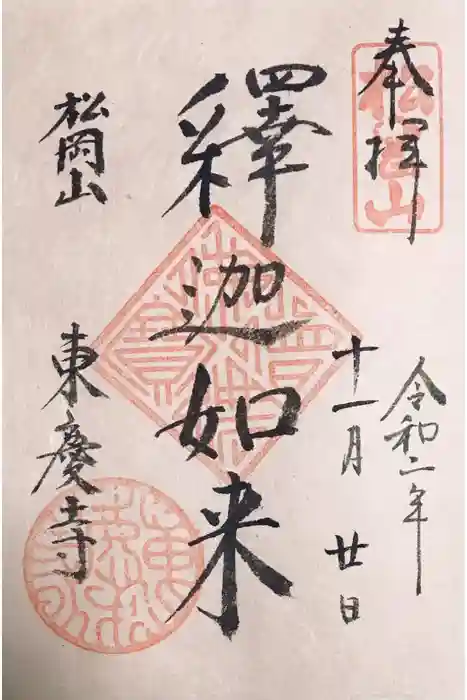 奉拝
松岡山
令和二年
十一月廿日
釋迦如来
松岡山
東慶寺